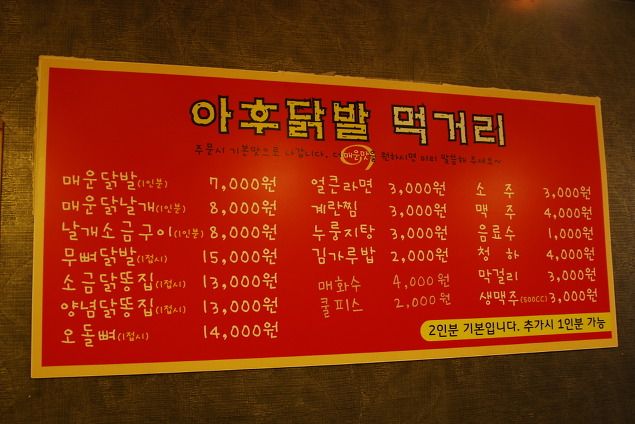 아후닭발 먹거리
주문시 기본맛으로 나갑니다. 더 매운맛을 원하시면 미리 말씀해 주세요~
매운닭발(1인분) 7,000원
매운닭날개(1인분) 8,000원
날개소금구이(1인분) 8,000원
무뼈닭발(1접시) 15,000원
소금닭똥집(1접시) 13,000원
양념닭똥집(1접시) 13,000원
오돌뼈(1접시) 14,000원
얼큰라면 3,000원
계란찜 3,000원
누룽지탕 3,000원
김가루밥 2,000원
매화수 4,000원
쿨피스 2,000원
소주 3,000원
맥주 4,000원
음료수 1,000원
청하 4,000원
막걸리 3,000원
생맥주(500CC) 3,000원
2인분 기본입니다. 추가시 1인분 가능